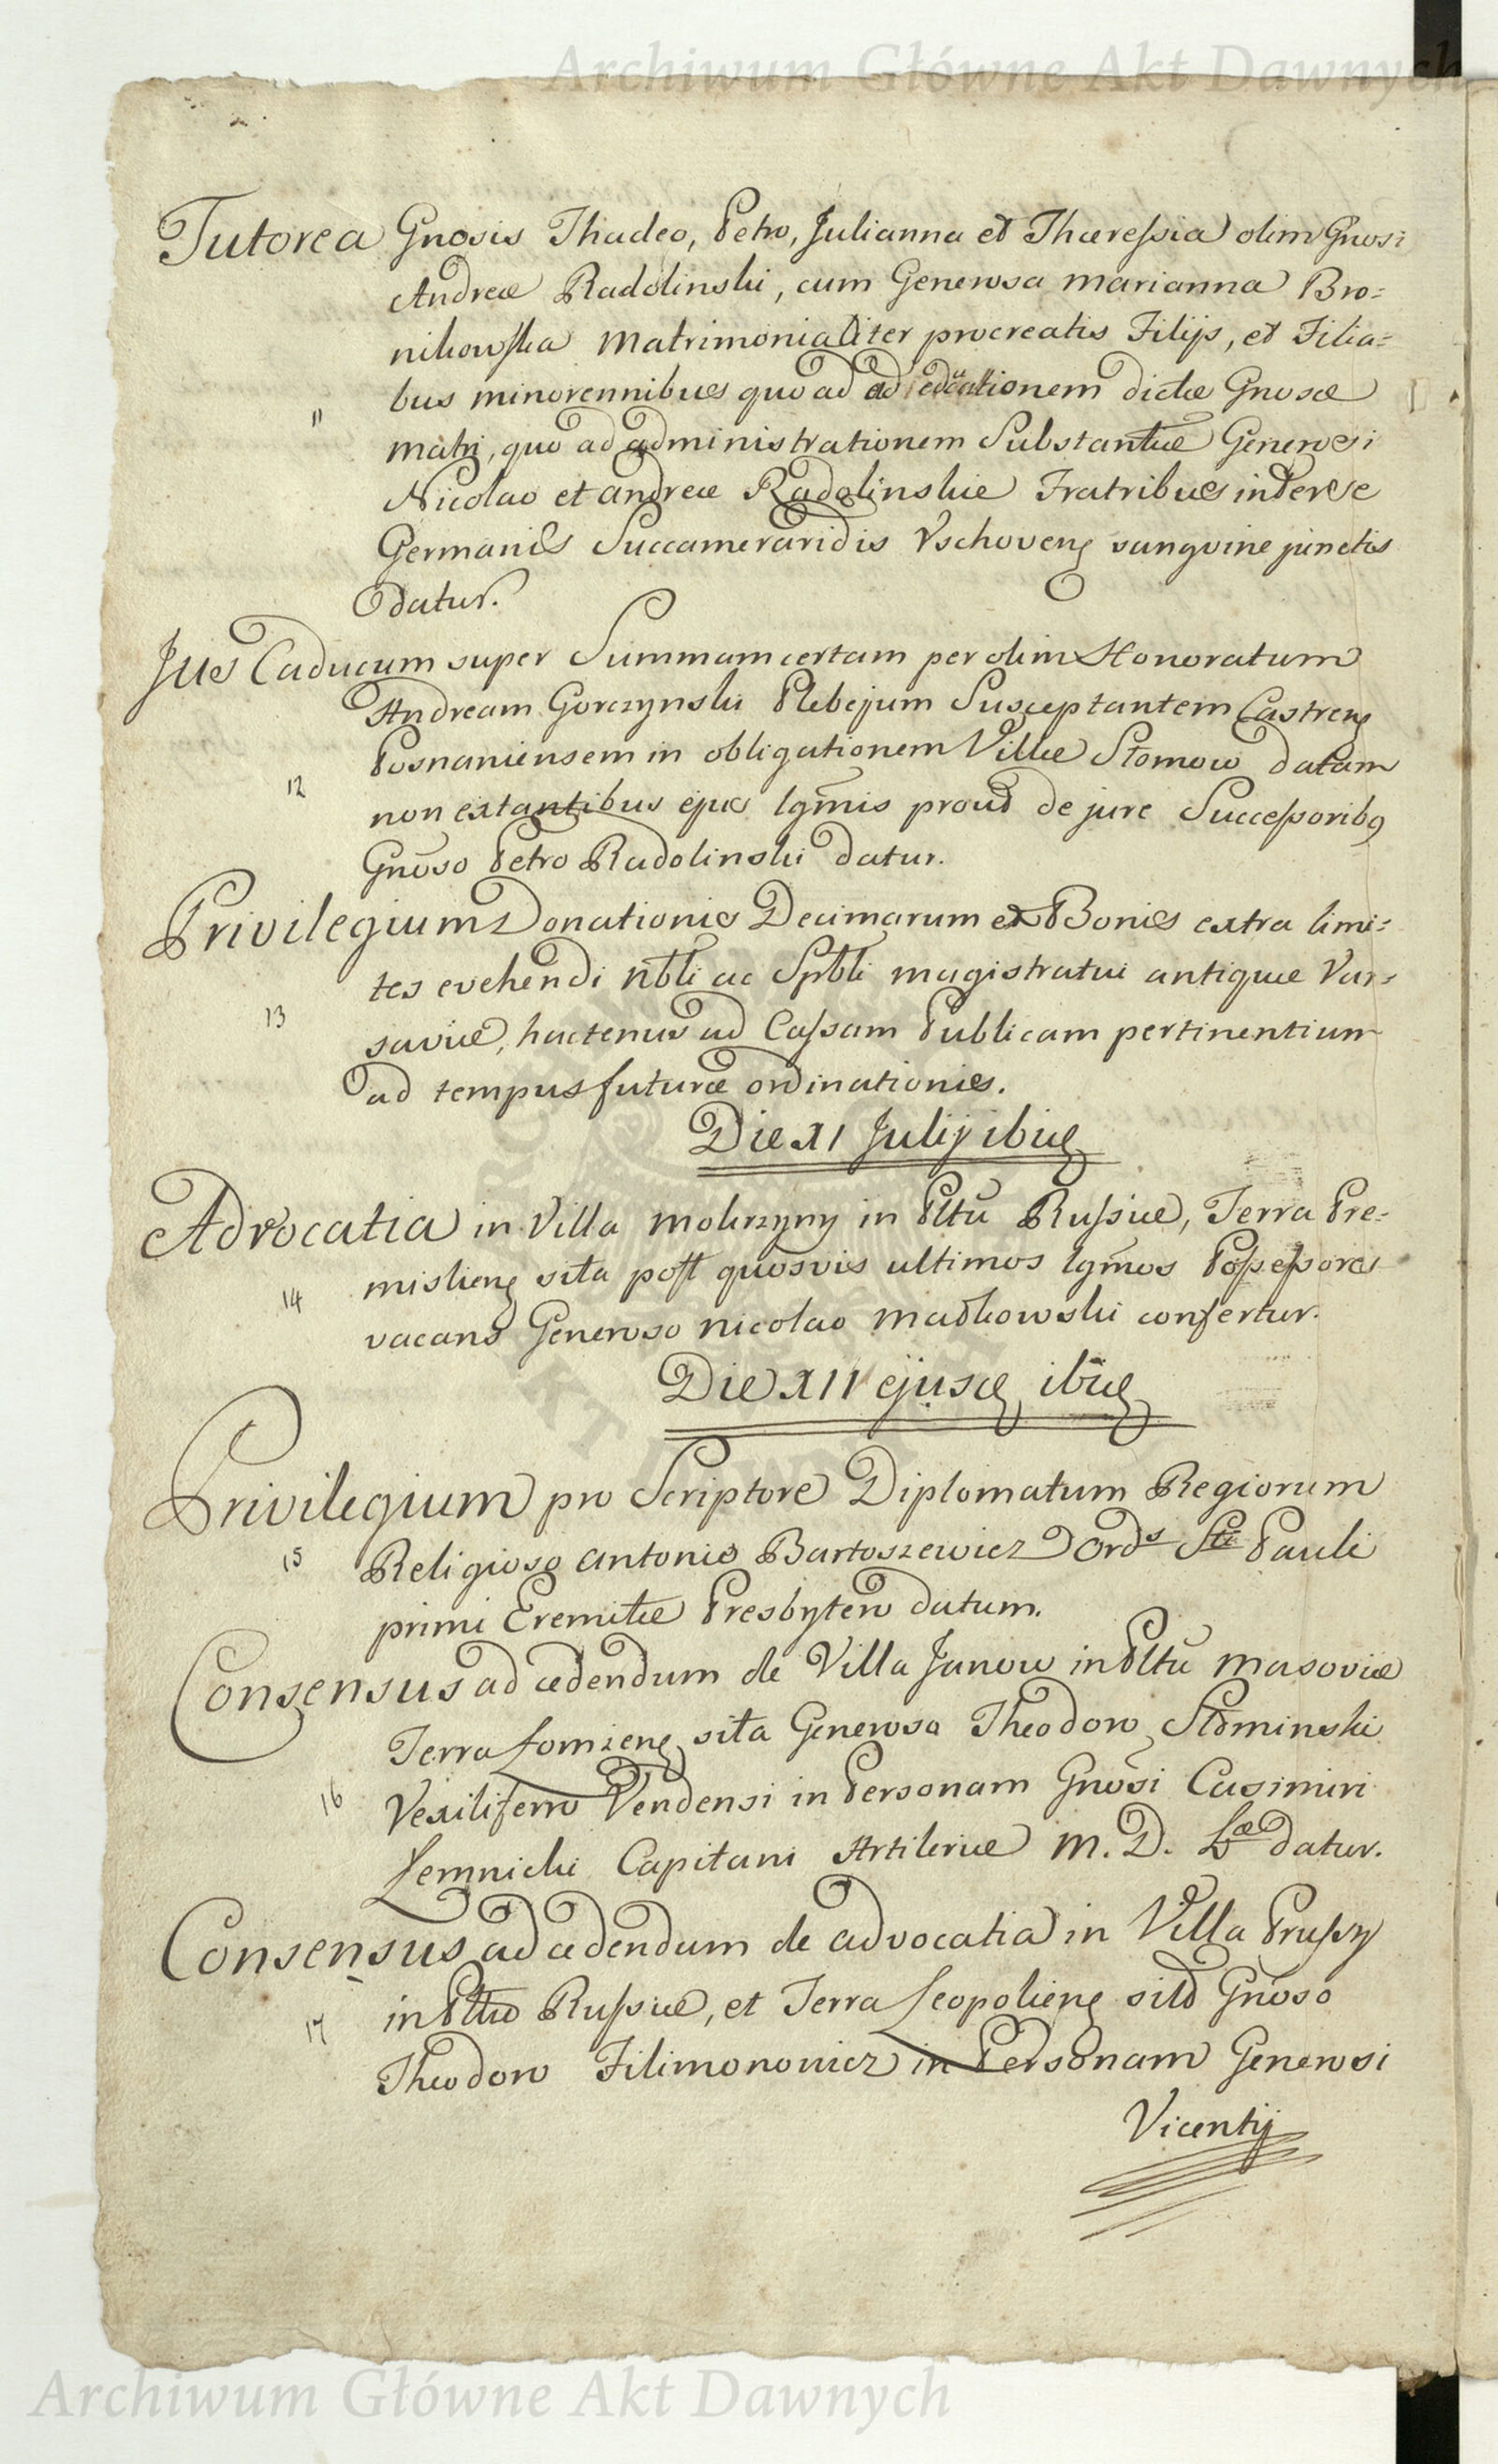 Archiwum Główne Akt Dawnych
Tutorea Gnosis Thadeo, Petro, Julianna et Thæressia olim Gnosi
Andreæ Radolinski, cum Generosa Marianna Bro=
nikowska Matrimonialiter procreatis Filijs, et Filia=
bus minorennibus quo ad educationem dictæ Gnosæ
11
matri, quo ad administrationem Substantiæ Generosi
Nicolao et Andreæ Radolinskie Fratribus inter se
Germanis Succameraridis Vschoven sanguine junctis
datur.
Jus Caducum super Summam certam per olim Honoratum
Andream Gorczynski Plebejum Susceptantem Castren
Posnaniensem in obligationem Villæ Słomow datam
12
non extantibus ejus lgmis prout de jure Successoribq
Gnoso Petro Radolinski datur.
Privilegium Donationis Decimarum ex Bonis extra limi=
tes evehendi Nbli ac Spbli Magistratui antiquæ Var=
13
saviæ, hactenus ad Cassam Publicam pertinentium
ad tempus futuræ ordinationis.
Die XI Julij ibid
Advocatia in Villa Mokrzyny in Pltu Russiæ, Terra Pre=
mislien sita post quosvis ultimos lgmos Possessores
14
vacans Generoso Nicolao Madkowski confertur.
Die XII ejusd ibid
Privilegium pro Scriptore Diplomatum Regiorum
15
Religioso Antonio Bartoszewicz Ords Sti Pauli
primi Eremitæ Presbytero datum.
Consensus ad cedendum de Villa Janow in Pltu Masoviæ
Terra Lomzen sita Generoso Theodoro Słominski
16
Vexilifero Vendensi in Personam Gnosi Casimiri
Lemnicki Capitani Artileriæ M. D. Læ datur.
Consensus ad cedendum de advocatia in Villa Prussy
in Pltu Russiæ, et Terra Leopolien sito Gnoso
17
Theodoro Filimonowicz in Personam Generosi
Vicentij
Archiwum Główne Akt Dawnych